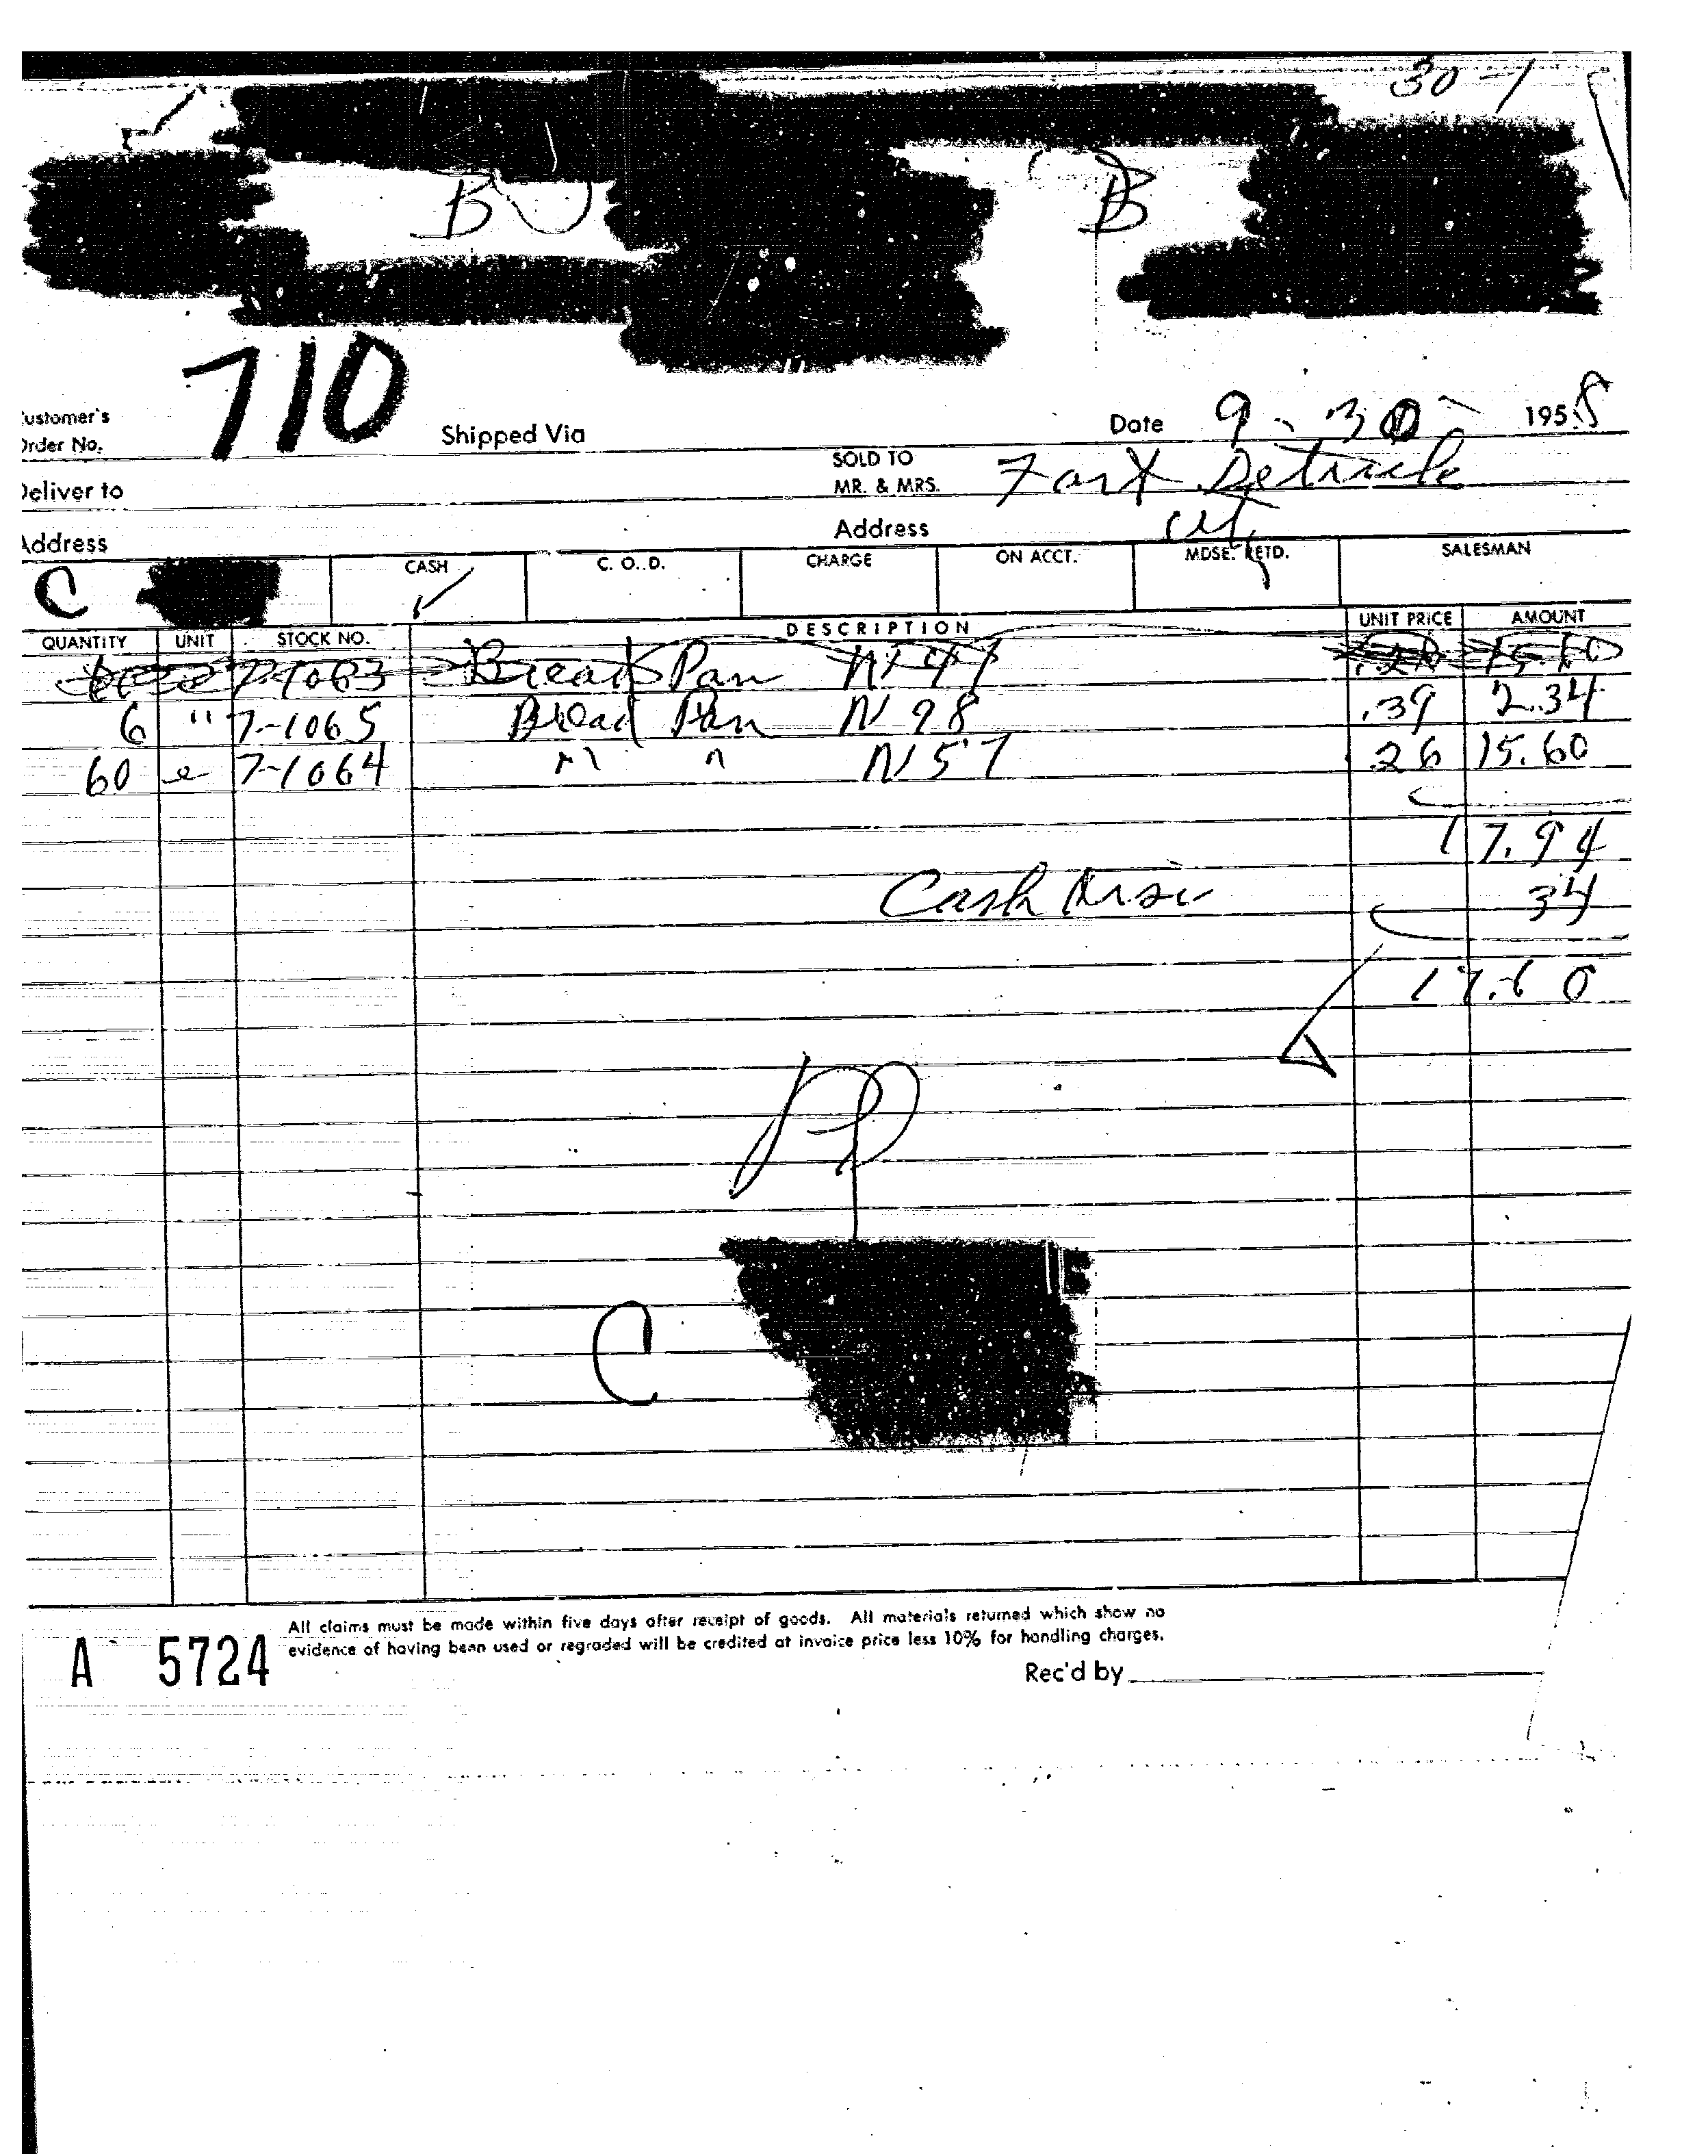 30-1
B B
710
ustomer's
Order No. Shipped Via Date 9-30- 1958
SOLD TO
MR. & MRS. Fort Detrick
Deliver to
Address Address
CASH C. O. D. CHARGE ON ACCT. MDSE. RETD. SALESMAN
C
QUANTITY UNIT STOCK NO. DESCRIPTION UNIT PRICE AMOUNT
7-1063 Bread Pan N 41 15.60
6 " 7-1065 Bread Pan N 98 .39 2.34
60 e 7-1064 " " N 57 26 15.60
17.94
Cash Disc 34
17.60
C
All claims must be made within five days after receipt of goods. All materials returned which show no
evidence of having been used or regraded will be credited at invoice price less 10% for handling charges.
A 5724
Rec'd by